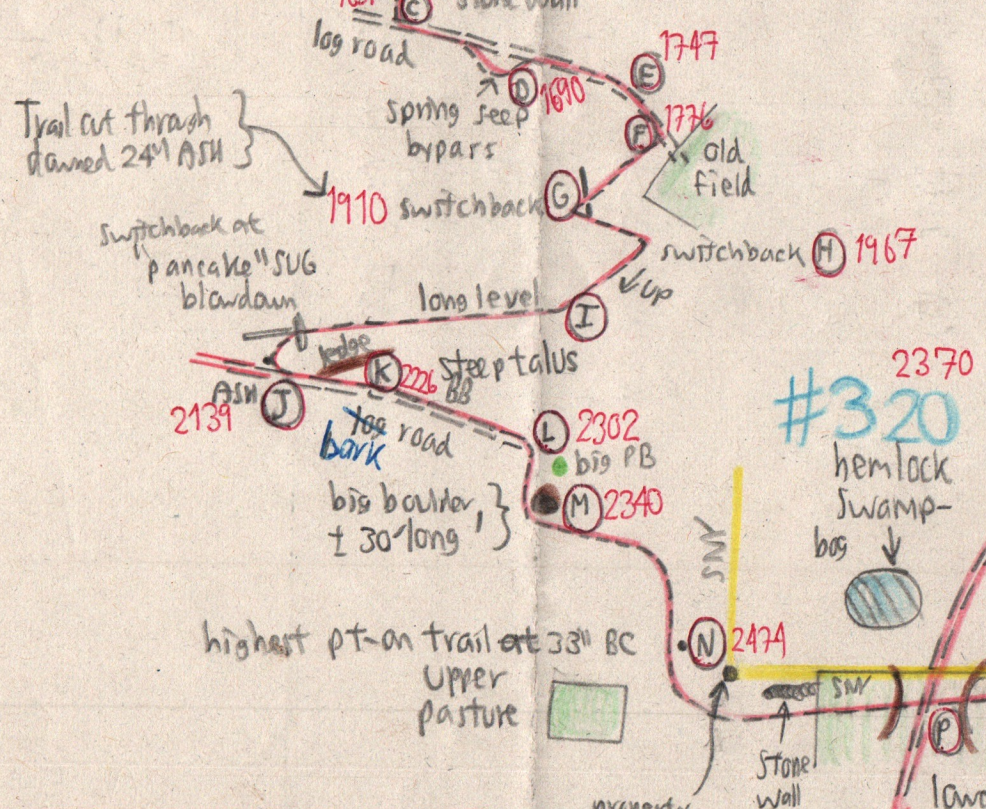 C
log road
D 1690
E 1747
spring seep
bypars
F 1776
old
field
Trail cut through
downed 24" ASH
1910 switchback G
switchback H 1967
switchback at
"pancake" SUG
blowdown
long level
up
I
ledge
K 2226
steep talus
BB
ASH J
2139
log road
bark
L 2302
big PB
2370
#320
hemlock
swamp-
bog
big boulder,
± 30' long
M 2340
SNY
highest pt-on trail at 33" BC
N 2474
upper
pasture
SNY
stone
wall
P
property